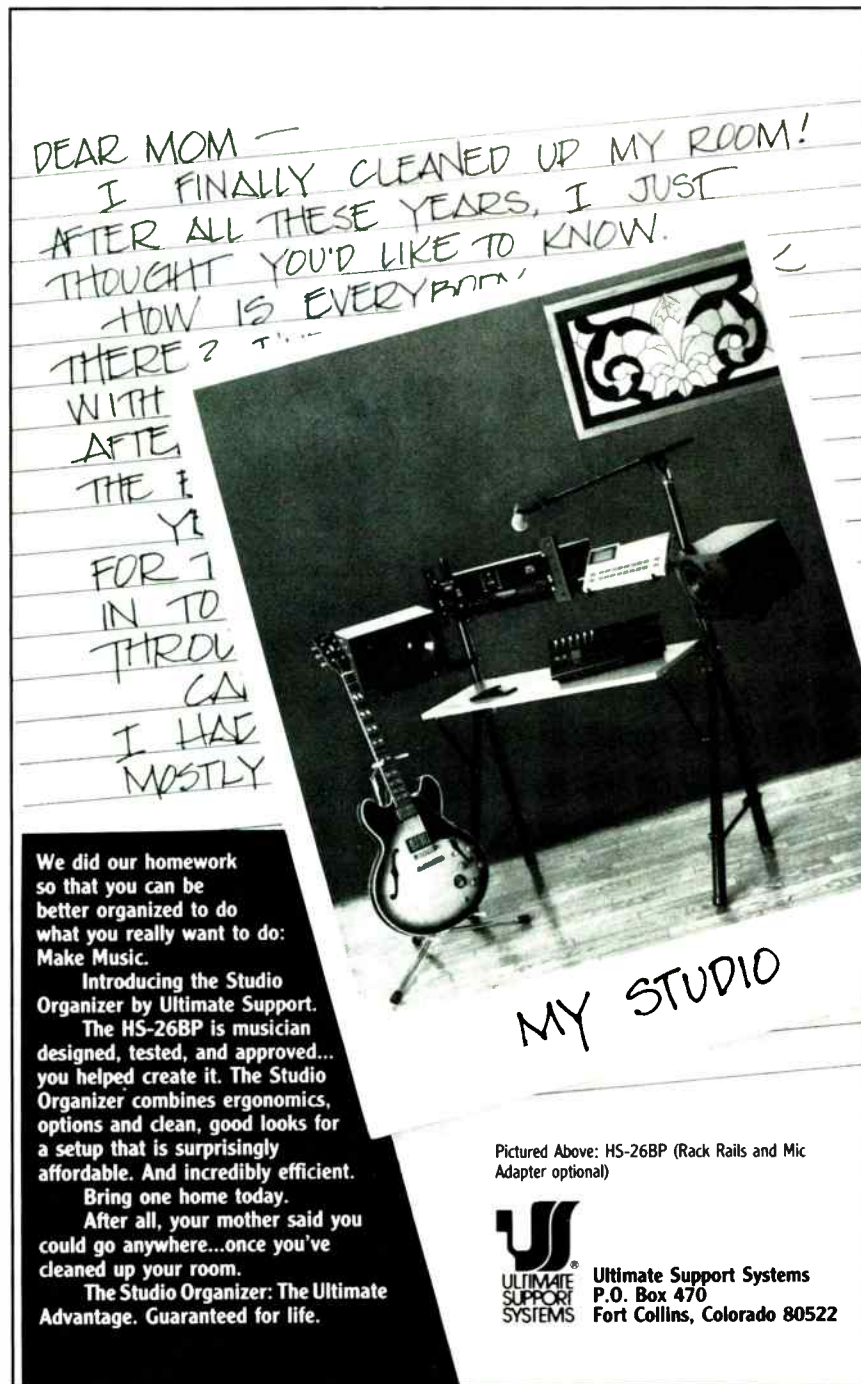 DEAR MOM —
I FINALLY CLEANED UP MY ROOM!
AFTER ALL THESE YEARS, I JUST
THOUGHT YOU'D LIKE TO KNOW.
HOW IS
THERE?
WITH
THE
FOR
IN TO
I
MOSTLY
MY STUDIO
We did our homework
so that you can be
better organized to do
what you really want to do:
Make Music.
Introducing the Studio
Organizer by Ultimate Support.
The HS-26BP is musician
designed, tested, and approved...
you helped create it. The Studio
Organizer combines ergonomics,
options and clean, good looks for
a setup that is surprisingly
affordable. And incredibly efficient.
Bring one home today.
After all, your mother said you
could go anywhere...once you've
cleaned up your room.
The Studio Organizer: The Ultimate
Advantage. Guaranteed for life.
Pictured Above: HS-26BP (Rack Rails and Mic
Adapter optional)
ULTIMATE
SUPPORT
SYSTEMS
®
Ultimate Support Systems
P.O. Box 470
Fort Collins, Colorado 80522